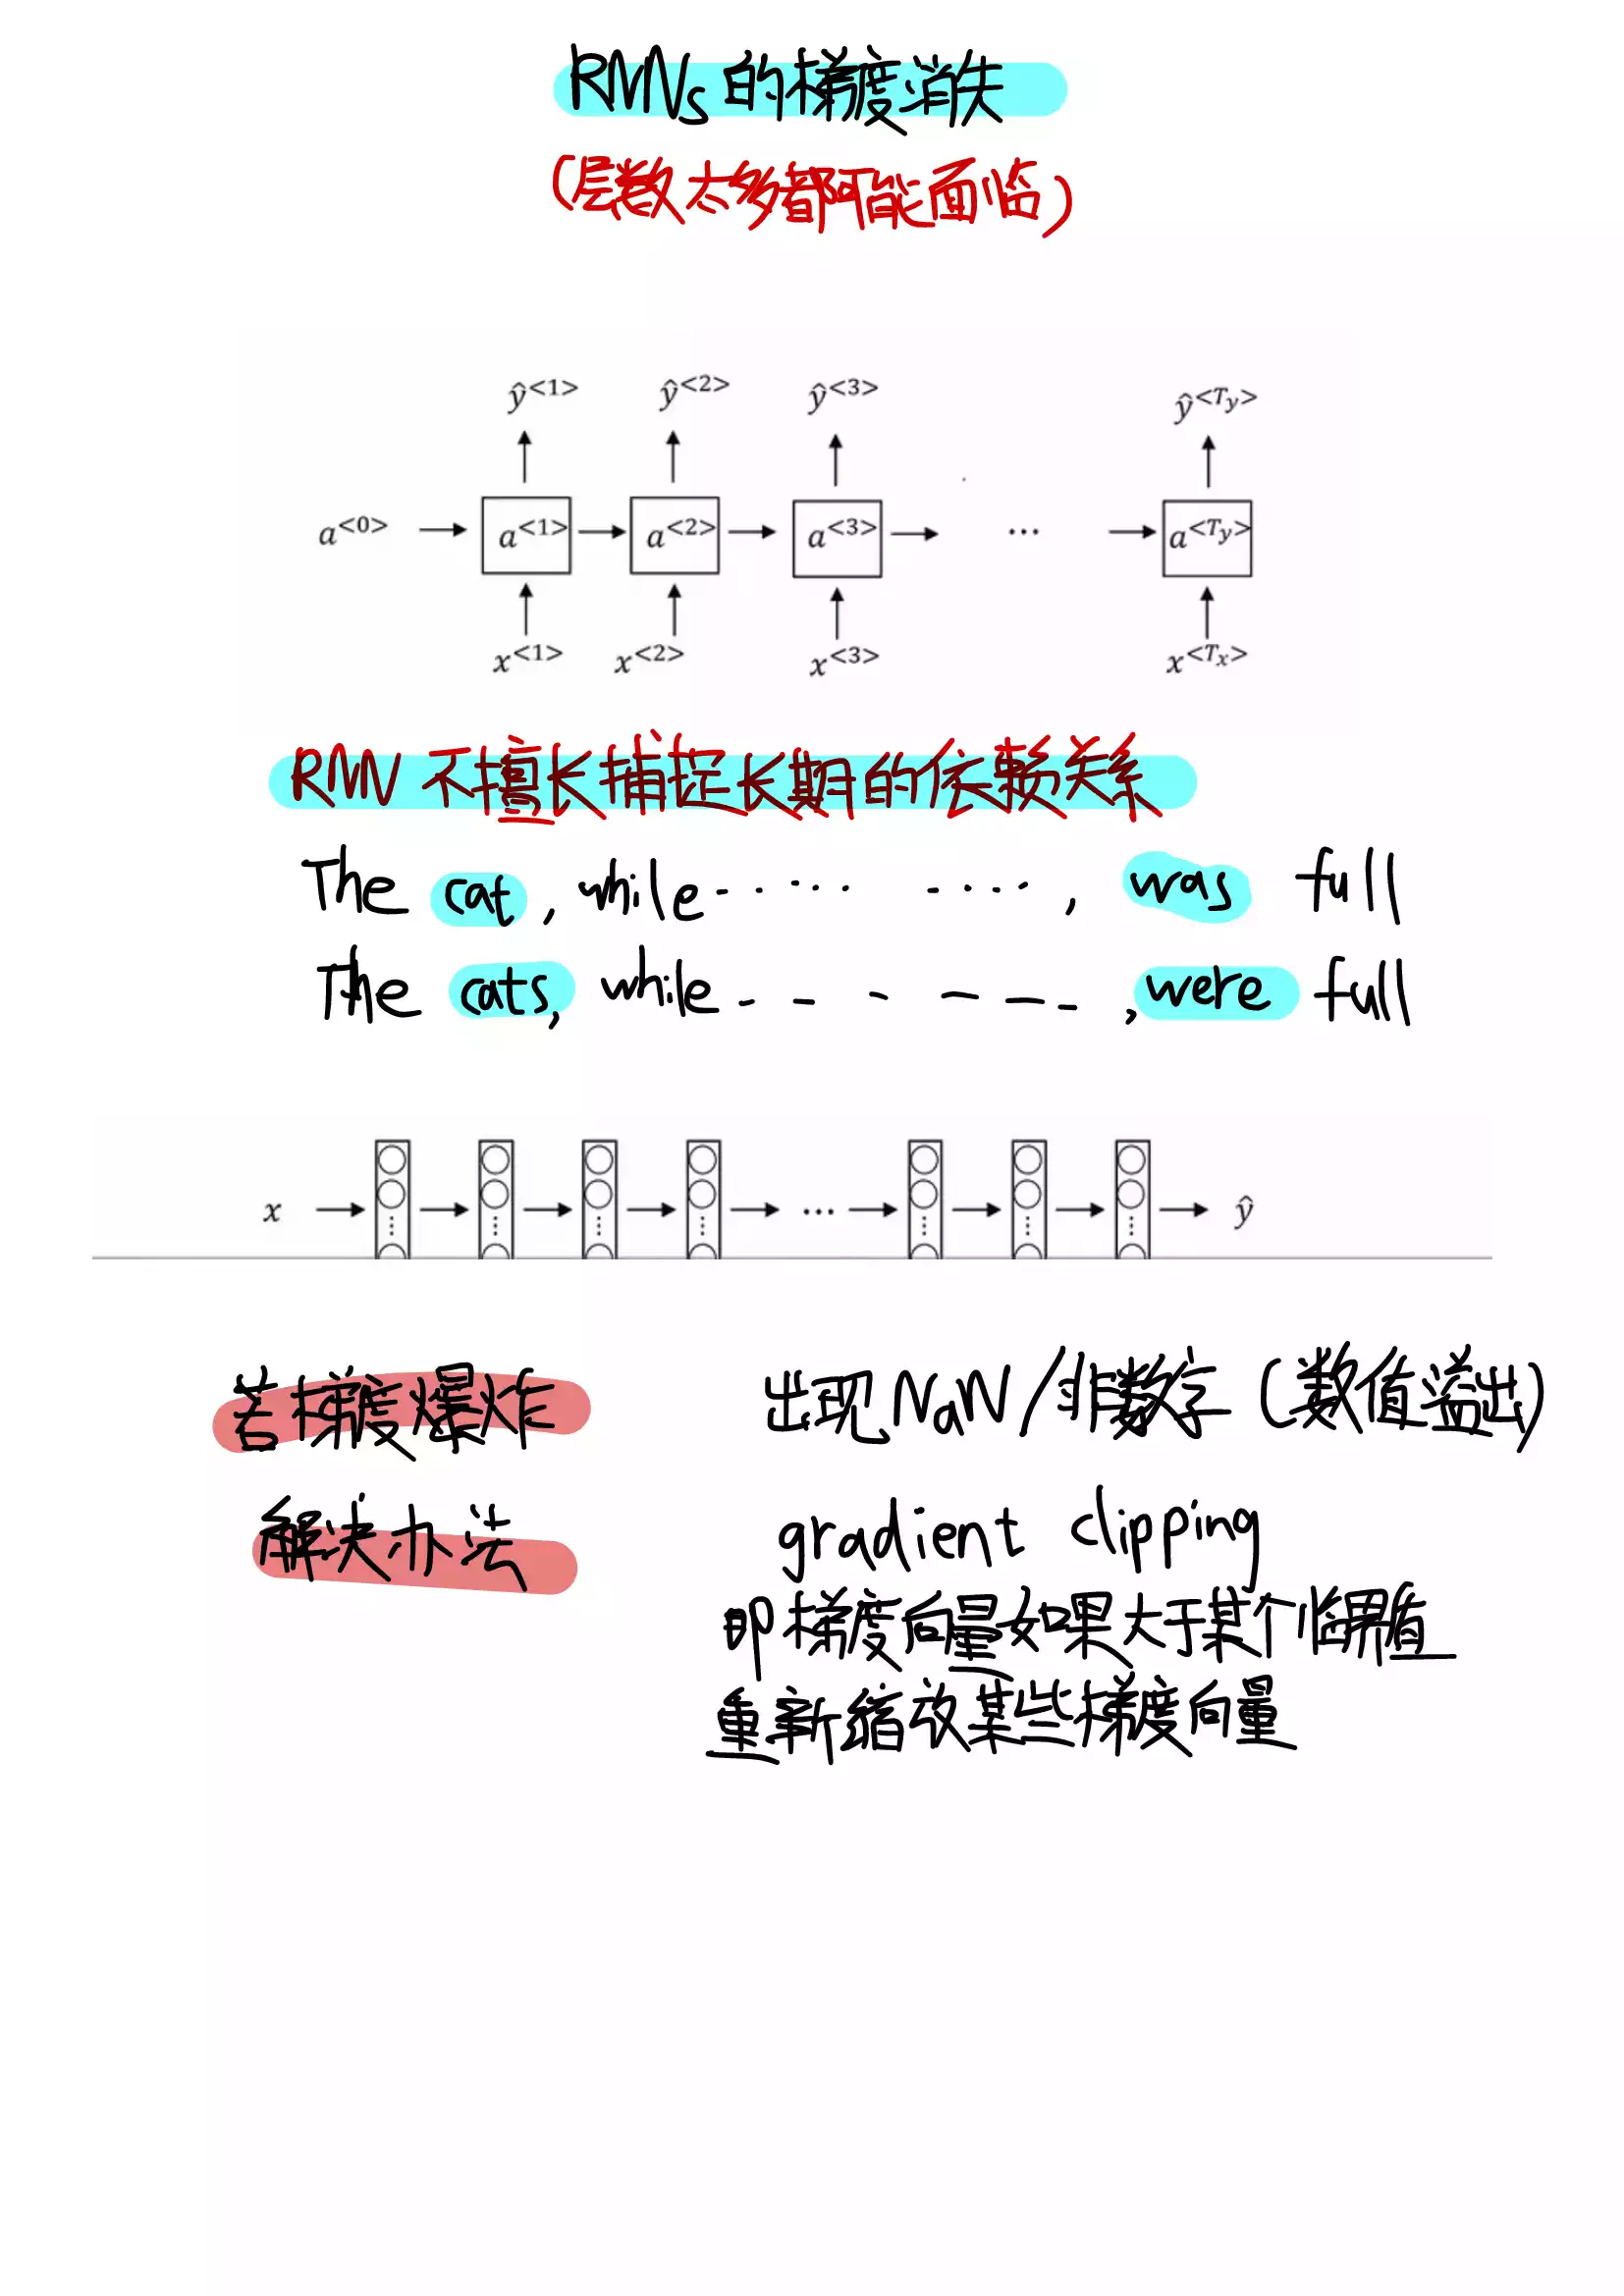 RNNs 的梯度消失
(层数太多都可能面临)
ŷ<1> ŷ<2> ŷ<3> ŷ<Ty>
a<0> a<1> a<2> a<3> ... a<Ty>
x<1> x<2> x<3> x<Tx>
RNN 不擅长捕捉长期的依赖关系
The cat, while ........., was full
The cats, while ------, were full
x ... ŷ
若梯度爆炸 出现NaN/非数字(数值溢出)
解决办法 gradient clipping
即梯度向量如果大于某个临界值
重新缩放某些梯度向量